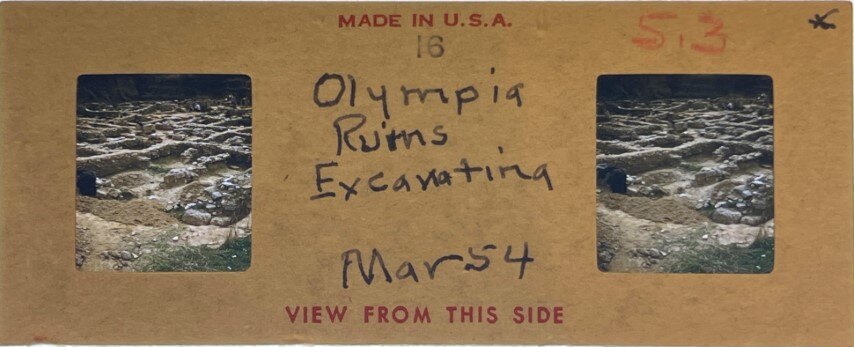 MADE IN U.S.A.
16
5.3
Olympia
Ruins
Excavating
Mar 54
VIEW FROM THIS SIDE